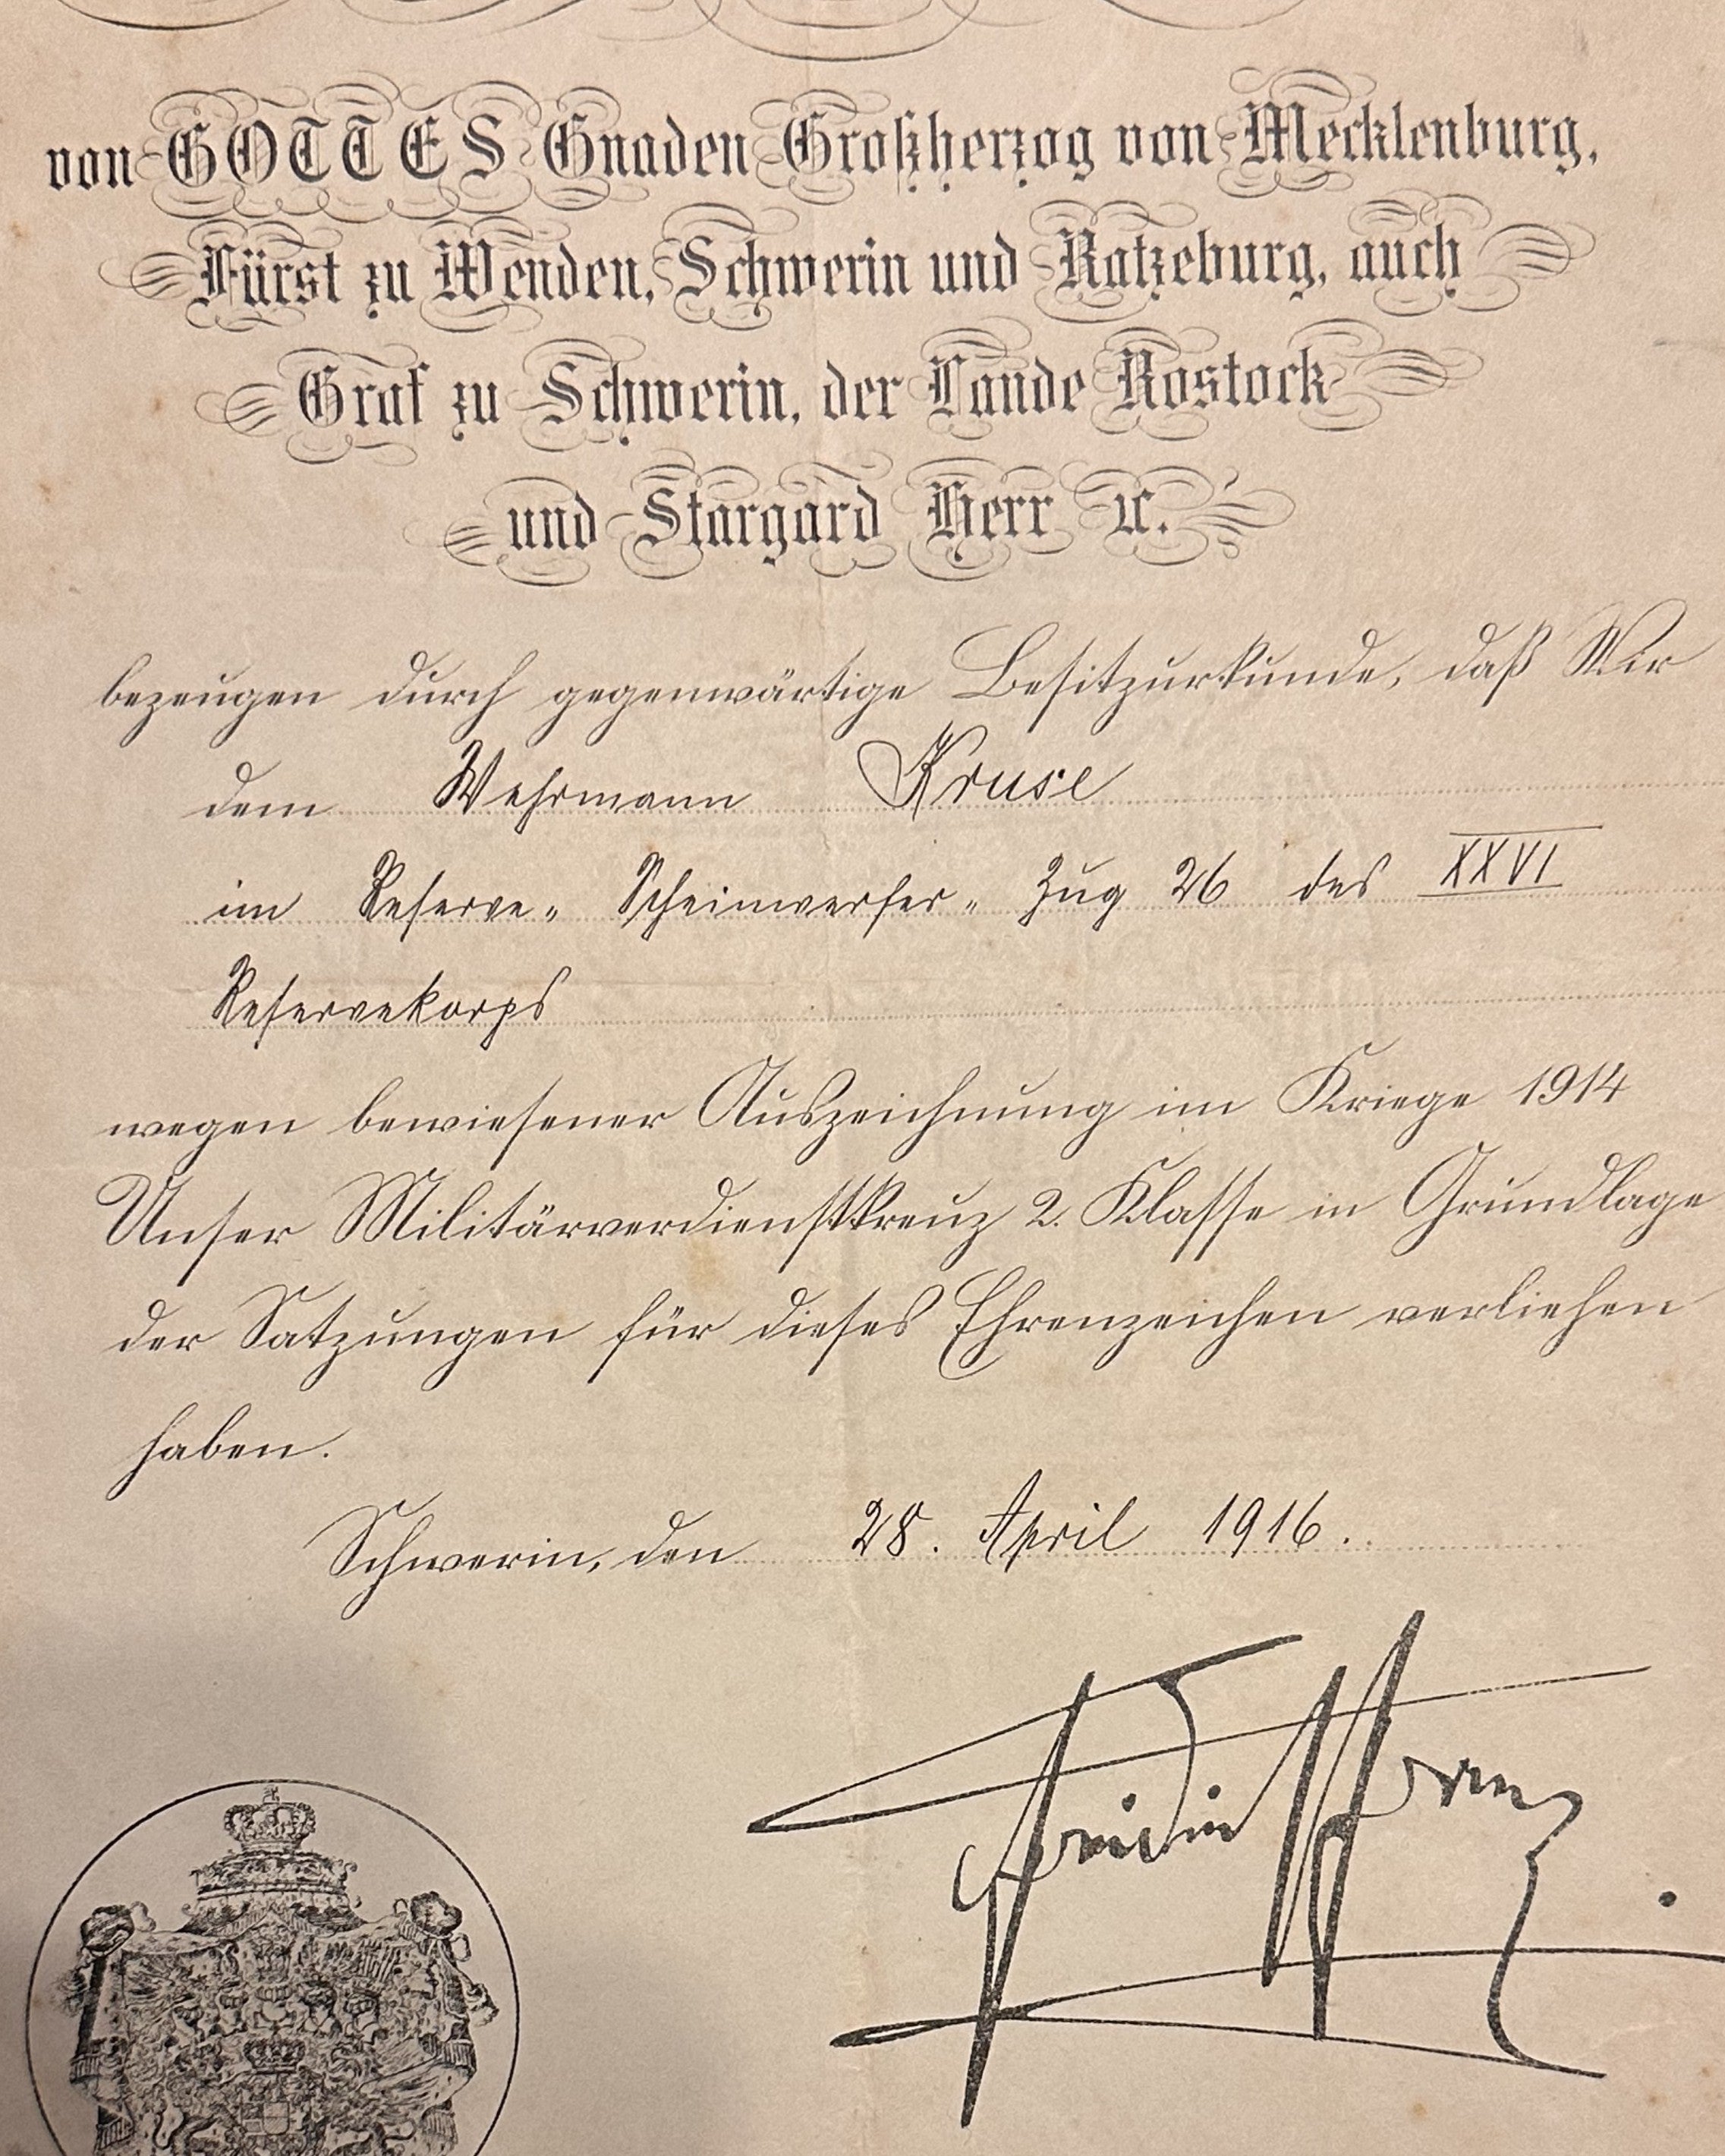 von GOTTES Gnaden Großherzog von Mecklenburg,
Fürst zu Wenden, Schwerin und Ratzeburg, auch
Graf zu Schwerin, der Lande Rostock
und Stargard Herr ꝛc.
bezeugen durch gegenwärtige Besitzurkunde, daß Wir
dem Wehrmann Kruse
im Reserve-Scheinwerfer-Zug 26 des XXVI
Reservekorps
wegen bewiesener Auszeichnung im Kriege 1914
Unser Militärverdienstkreuz 2. Klasse in Grundlage
der Satzungen für dieses Ehrenzeichen verliehen
haben.
Schwerin, den 28. April 1916.
Friedrich Franz